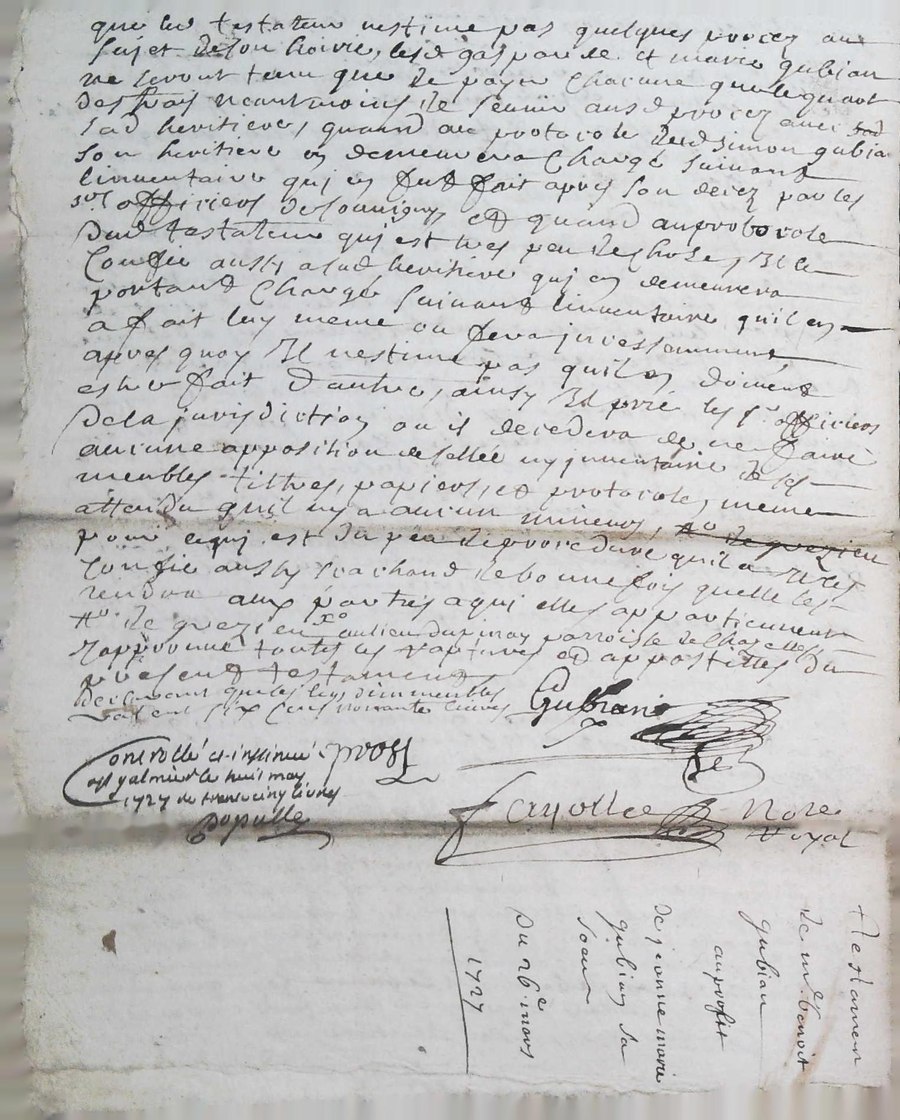 que led testateur nestime pas quelques procez au
sujet de son hoirie, lesd gasparde et marie gubian
ne seront tenu que de payer chacune que le quart
des frais neantmoins de aud procez avec sad
sad heritiere, quand au protocole dud simon gubian
son heritiere en demeurera charge suivant
linventaire qui en fut fait apres son decez par les
srs officiers de souvigny et quand au protocole
dud testateur qui est tres peu de chose, Il le
confie aussy a sad heritiere qui en demeurera
portant charge suivant linventaire quil en
a fait luy meme ou fera incessamment
apres quoy Il nestime pas quil en doive
estre fait dautre, ainsy Il prie les srs officiers
de la jurisdiction ou il decedera de ne faire
aucune apposition de sellee ny inventaire de ses
meubles tiltres, papiers, et protocoles, meme
attendu quil ny a aucun mineurs,
pour ce qui est du peu de procedure quil a Il les
confie aussy sachand de bonne fois quelle les
rendra aux partyes a qui elles appartiennent
au lieu du pinay parroisse de chazelles
japprouve toutes les raptures et appostilles du
present testament
declarant que les biens dimmeubles
valent six cens livres Gubian
Controllé et insinué
a st galmier le huit may
1727 re trente cinq livres
Populle
Fayolle Nore
Royal
Testament
de mre benoit
gubian
au profit
de jeanne marie
gubian sa
soeur
du 26e mars
1727